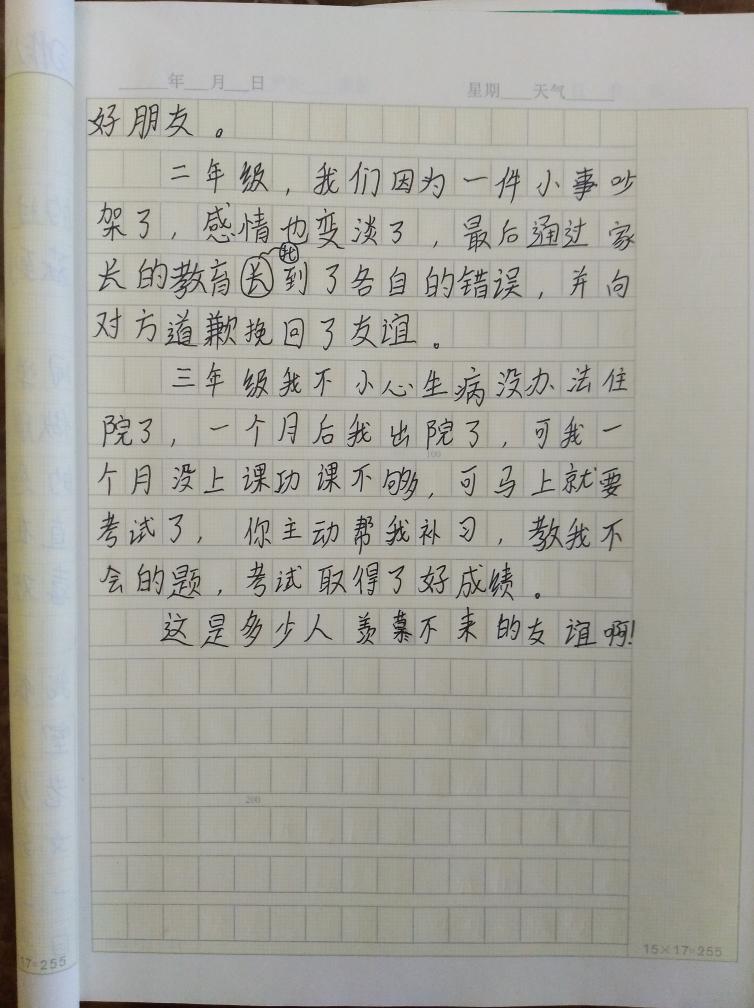 年 月 日 星期 天气
好朋友。
二年级，我们因为一件小事吵
架了，感情也变淡了，最后通过家
长的教育长找到了各自的错误，并向
对方道歉挽回了友谊。
三年级我不小心生病没办法住
院了，一个月后我出院了，可我一
个月没上课功课不够，可马上就要
考试了，你主动帮我补习，教我不
会的题，考试取得了好成绩。
这是多少人羡慕不来的友谊啊！
100
200
15×17=255
17=255